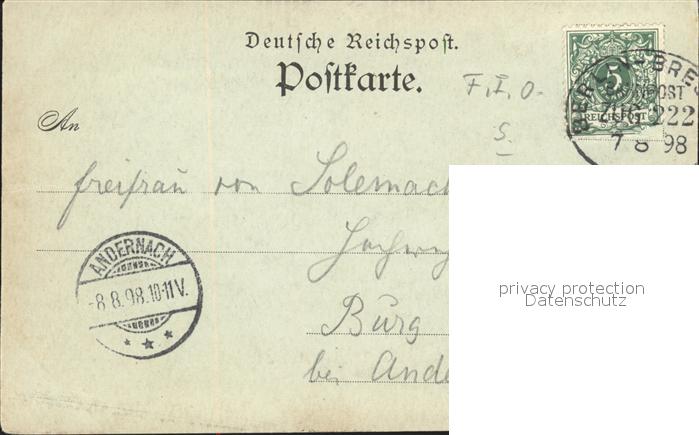 Deutsche Reichspost.
Postkarte.
F. I. O.
S.
5
REICHSPOST
ZUG 222
7 8 98
An
Freifrau von Solemach
ANDERNACH
-8.8.98.10-11V.
Burg
bei Ande
privacy protection
Datenschutz